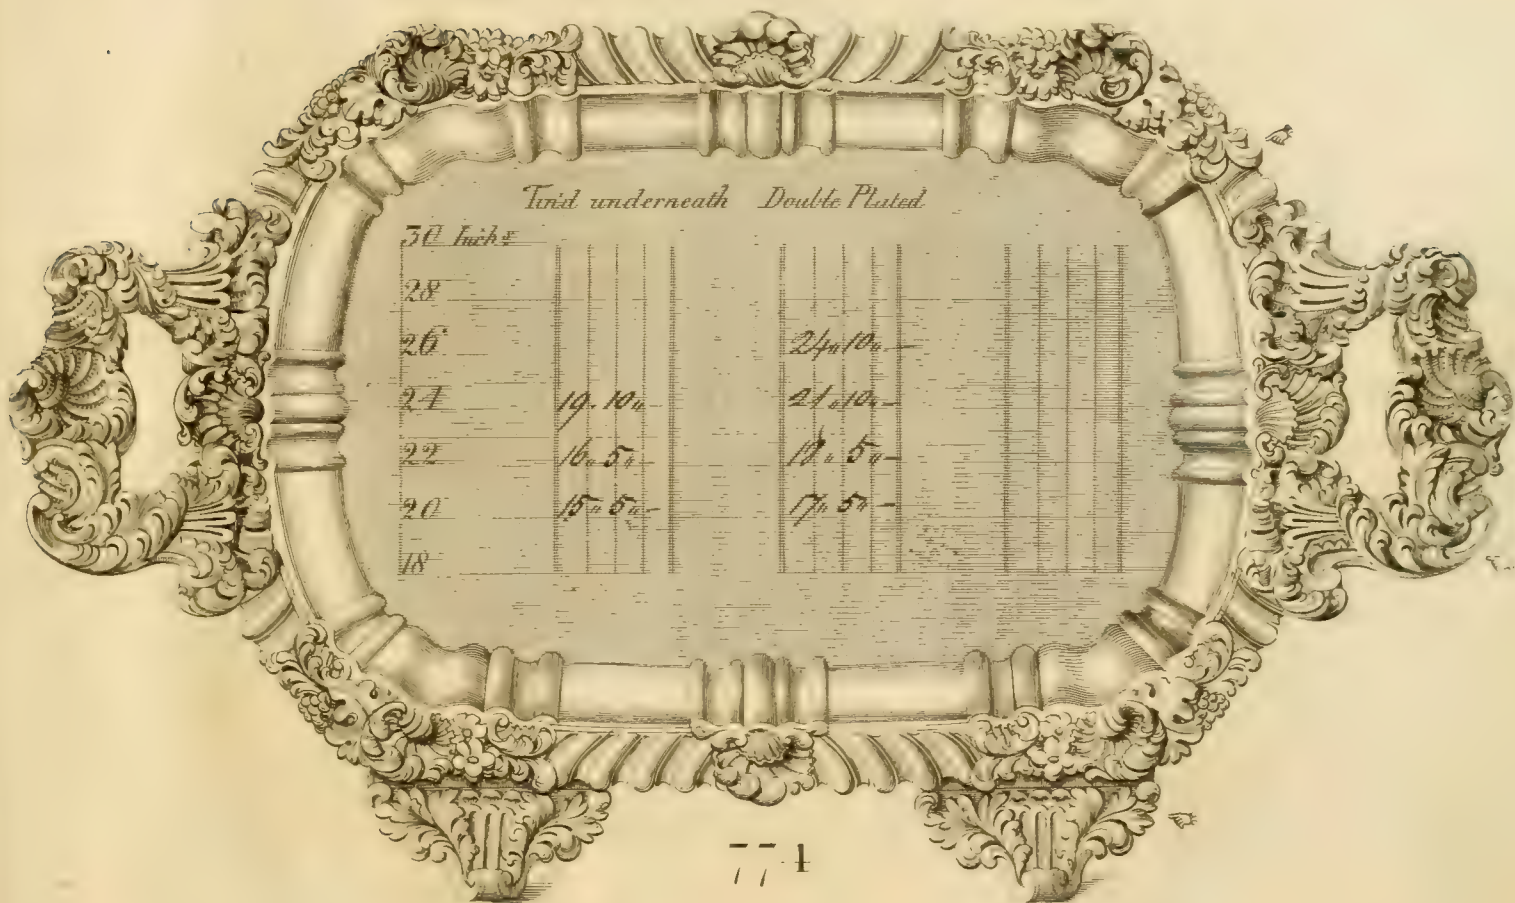 Tin'd underneath Double Plated
30 Inchs
28
26 24 " 10 " -
24 19 " 10 " - 21 " 10 " -
22 16 " 5 " - 18 " 5 " -
20 15 " 5 " - 17 " 5 " -
18
774